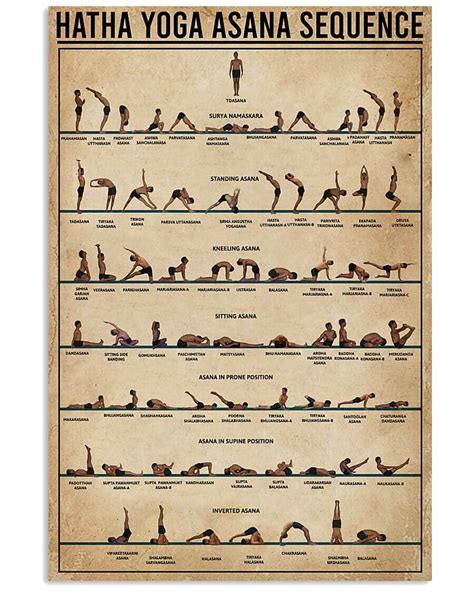 HATHA YOGA ASANA SEQUENCE
TDASANA
SURYA NAMASKARA
PRANAMASAN HASTA UTTHANASN PADAHAST ASANA ASHWA SANCHALANASA PARVATASANA ASHTANGA NAMASKARA BHUJANGASANA PARVATASANA ASHWA SANCHALANASA PADAHAST ASANA HASTA UTTHANASN PRANAMASAN
STANDING ASANA
TADASANA TIRYAKA TADASANA TRIKON ASANA PARSVA UTTANASANA SIRHA ANGUSTHA YOGASANA HASTA UTTHANASN-A HASTA UTTHANASN-B PARIVRITA TRIKONASANA EKAPADA PRANAMASANA DRUTA UTKTASANA
KNEELING ASANA
SIMHA GARJAN ASANA VEERASANA PARIGHASANA MARJARIASANA-A MARJARIASANA-B USTRASAN BALASANA TIRYAKA MARJARIASNA-A TIRYAKA MARJARIASNA-B TIRYAKA MARJARIASNA-C
SITTING ASANA
DANDASANA SITTING SIDE BANDING GOMUKHSANA PASCHIMITTAN ASANA MATSYASANA BHU NAMANASANA ARDHA MATSYENDRA ASANA BADDHA KONASANA-A BADDHA KONASANA-B MERUDANDA ASANA
ASANA IN PRONE POSITION
MAKARASANA BHUJANGASANA SHASHANKASANA ARDHA SHALABHASANA POORNA SHALABHASANA TIRYAKA BHUJANGASANA-A TIRYAKA BHUJANGASANA-B SANTOOLAN ASANA CHATURANGA DANDASANA
ASANA IN SUPINE POSITION
PADOTTHAN ASANA SUPTA PAWANMUKT ASANA-A SUPTA PAWANMUKT ASANA-B KANDHARASAN SUPTA VAJRASANA SUPTA BALASANA UDARAKARSAN ASANA NAUKASANA-A NAUKASANA-B
INVERTED ASANA
VIPAREETAKARNI ASANA SHALAMBHA SARVANGASANA HALASANA TIRYAKA HALASANA CHAKRASANA SHALMBHA NIRALASANA BALASANA